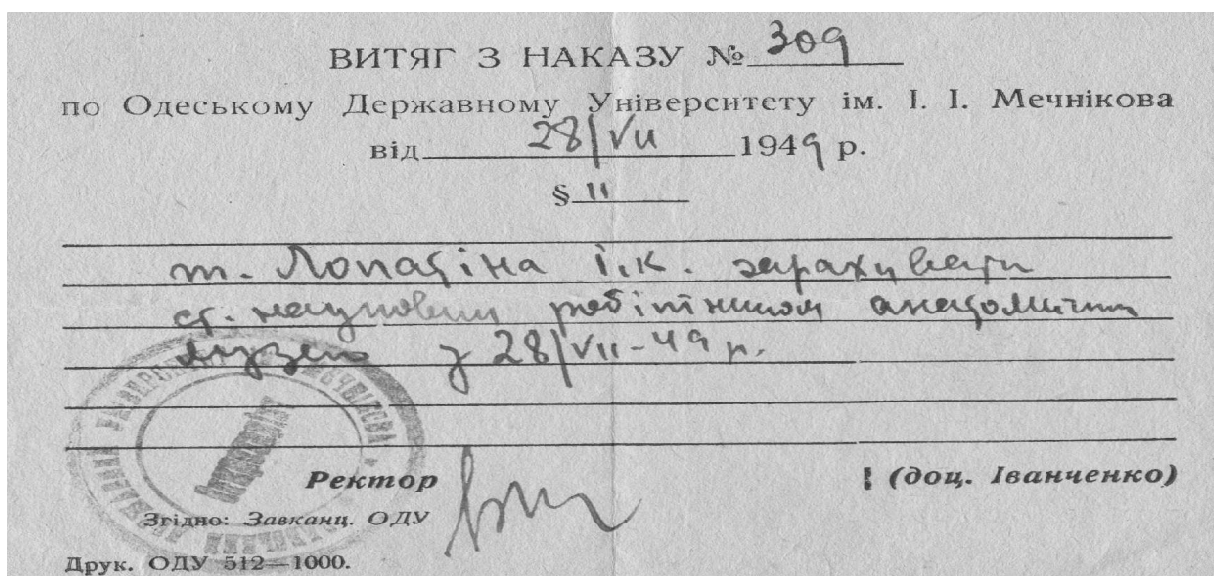 ВИТЯГ З НАКАЗУ № 309
по Одеському Державному Університету ім. І. І. Мечнікова
від 28/VII 1949 р.
§ 11
т. Лопатіна І.К. зарахувати
ст. науковим робітником анатомічн
музею з 28/VII-49 р.
Ректор (доц. Іванченко)
Згідно: Завканц. ОДУ
Друк. ОДУ 512—1000.